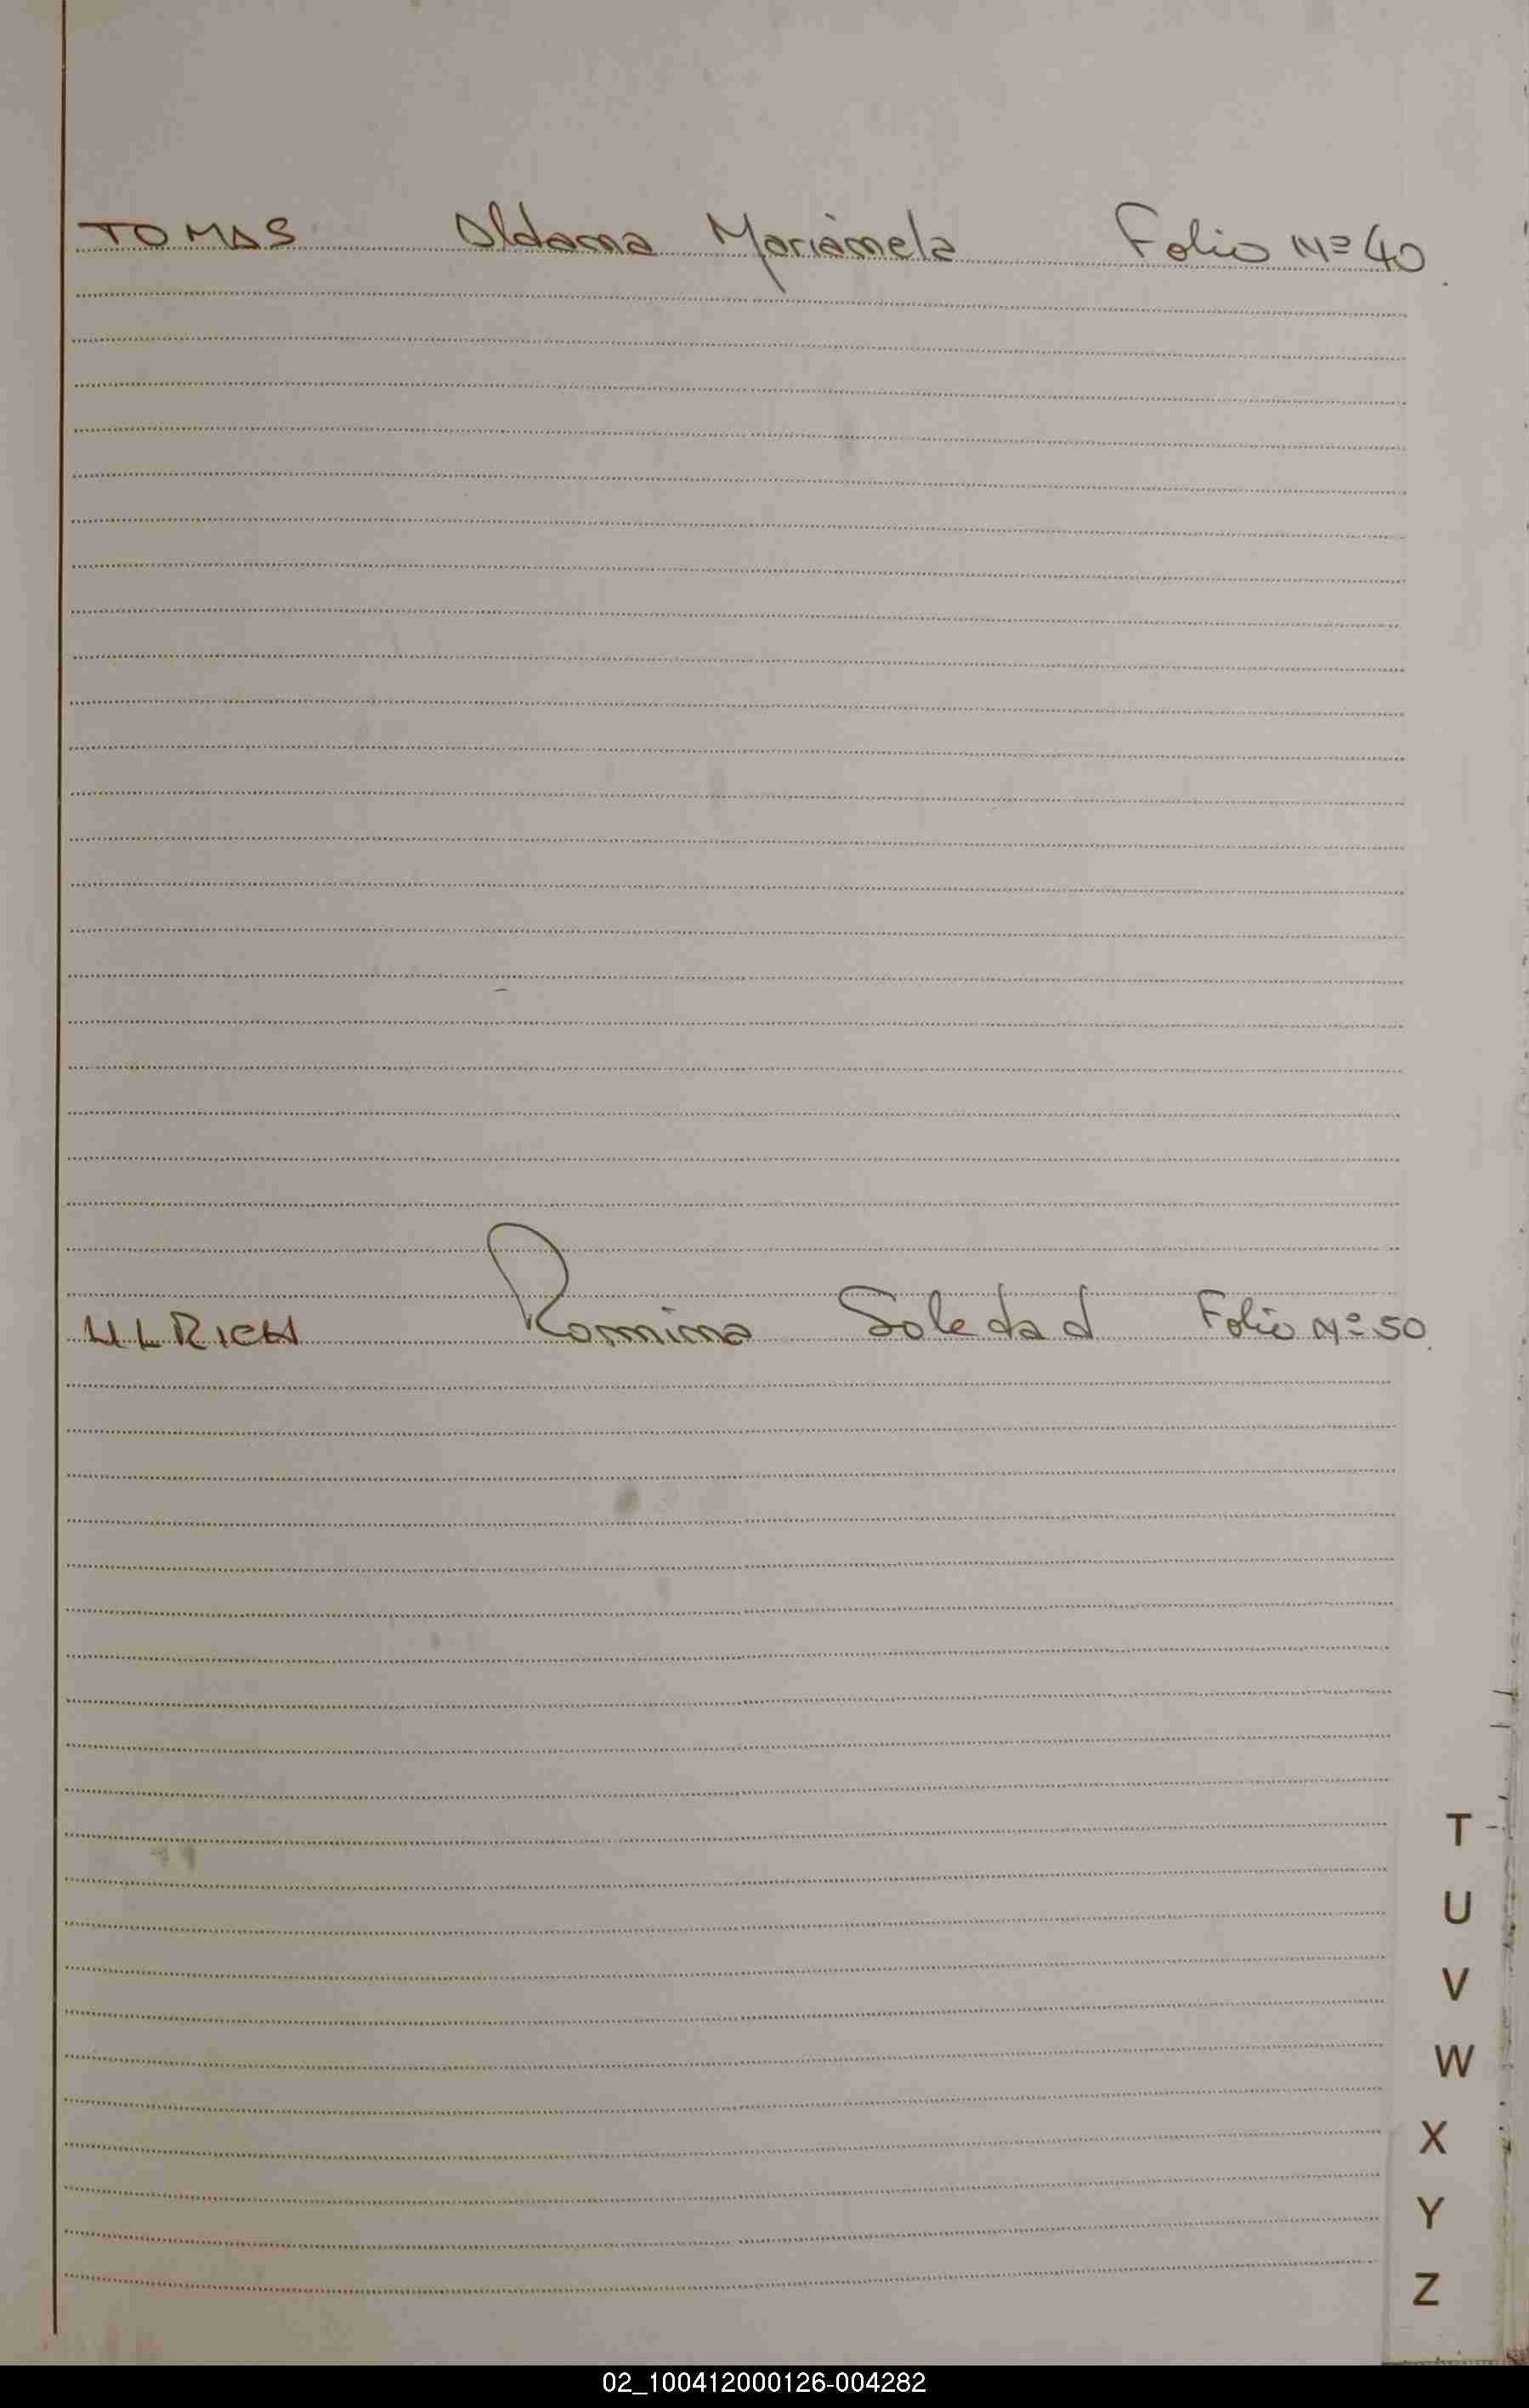 TOMAS Aldama Mariamela Folio Nº 40.
ULRICH Rommima Soledad Folio Nº 50.
T
U
V
W
X
Y
Z
02_100412000126-004282